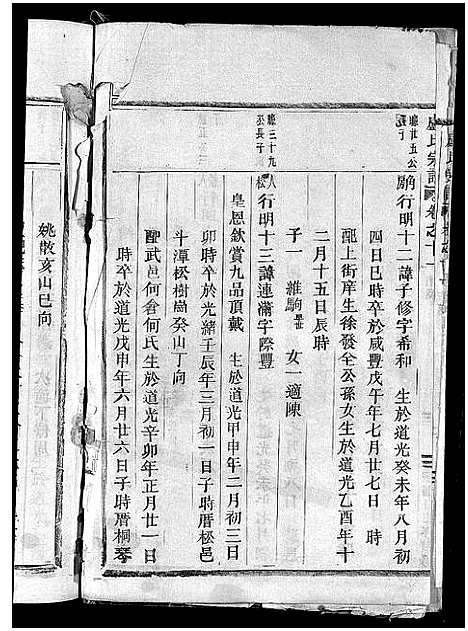 盧氏宗譜
卷之十
聰廿五公
行
行明十二諱子修字希和 生於道光癸未年八月初
四日巳時卒於咸豐戊午年七月廿七日 時
配上街庠生徐發全公孫女生於道光乙酉年十
二月十五日辰時
子一 維駒 女一適陳
聰三十九
公長子
松八行明十三諱連滿字際豐
皇恩欽賞九品頂戴 生於道光甲申年二月初三日
卯時卒於光緒壬辰年三月初一日子時厝松邑
斗潭松樹崗癸山丁向
配武邑何倉何氏生於道光辛卯年正月廿一日
時卒於道光戊申年六月廿六日子時厝桐琴
姚散亥山巳向